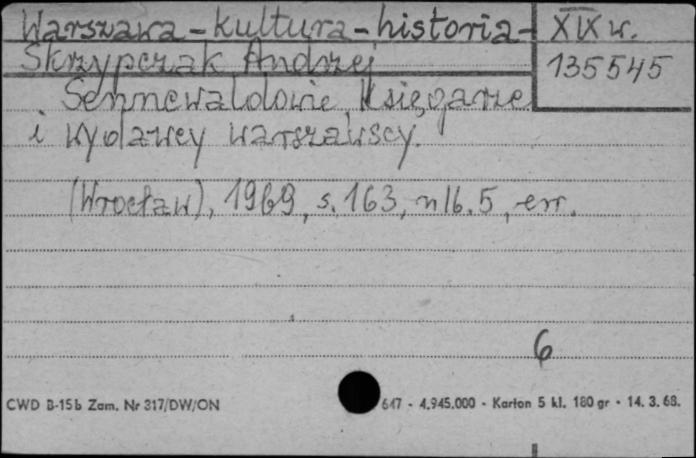 Warszawa - kultura - historia - XIX w.
Skrzypczak Andrzej
135545
Sennewaldowie Księgarze
i wydawcy warszawscy.
(Wrocław), 1969, s. 163, nlb. 5, err.
6
CWD B-15b Zam. Nr 317/DW/ON 647 - 4.945.000 - Karton 5 kl. 180 gr • 14. 3. 68.